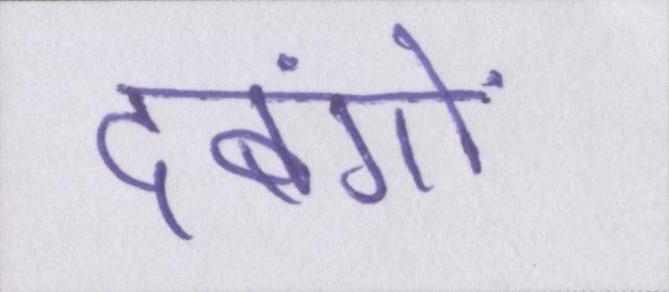 दबंगों